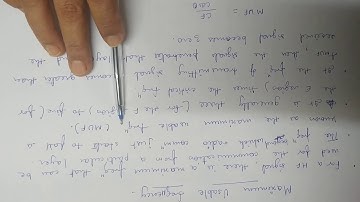 Maximum Usable frequency -
For a HF signal there is a max "freq" that can be
used for communication from a particular layer.
The freq at which radio just starts to fall
known as the maximum usable freq (MUF).
It is generally three (for the F region) to five (for
the E region) times the "critical freq"
If the freq of transmitting signal becomes greater than
MUF, then the signals penetrates that layer
received signal becomes zero.
MUF = CF / cosθ